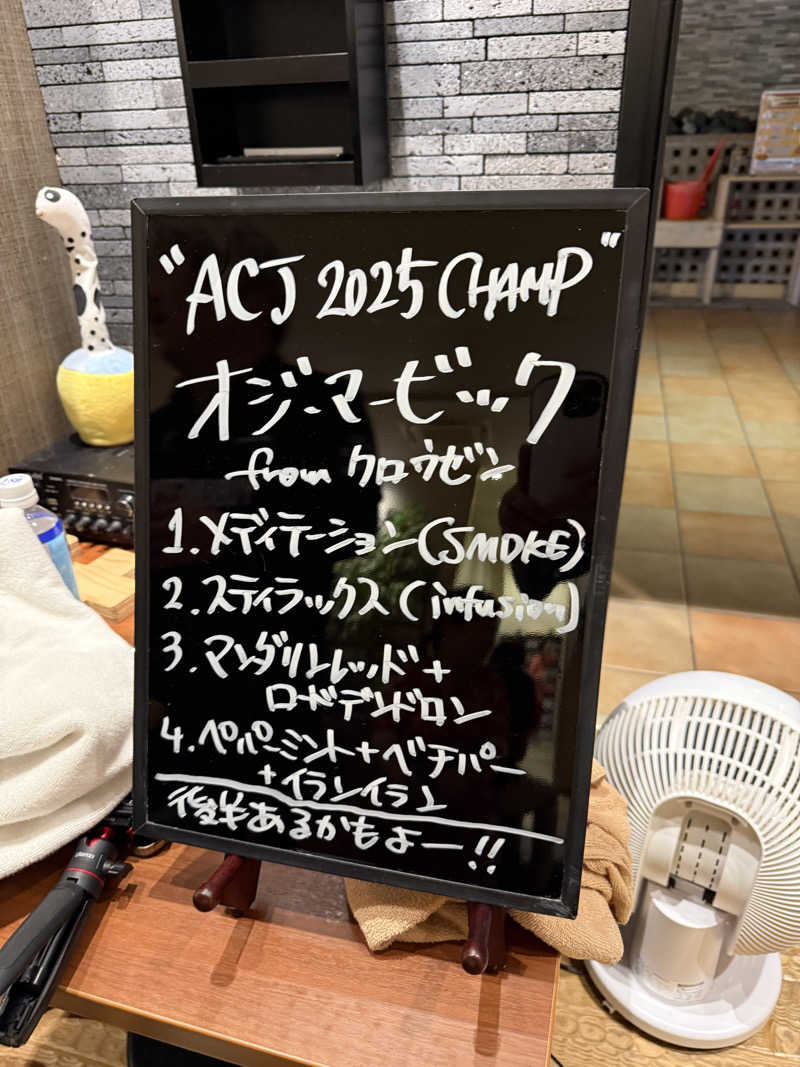 "ACJ 2025 CHAMP"
オジマービック
from クロウゼン
1.メディテーション(SMOKE)
2.スティラックス(infusion)
3.マンダリンレッド+
ロードデンドロン
4.ペパーミント+ベチパー
+イランイラン
後半あるかもよー!!